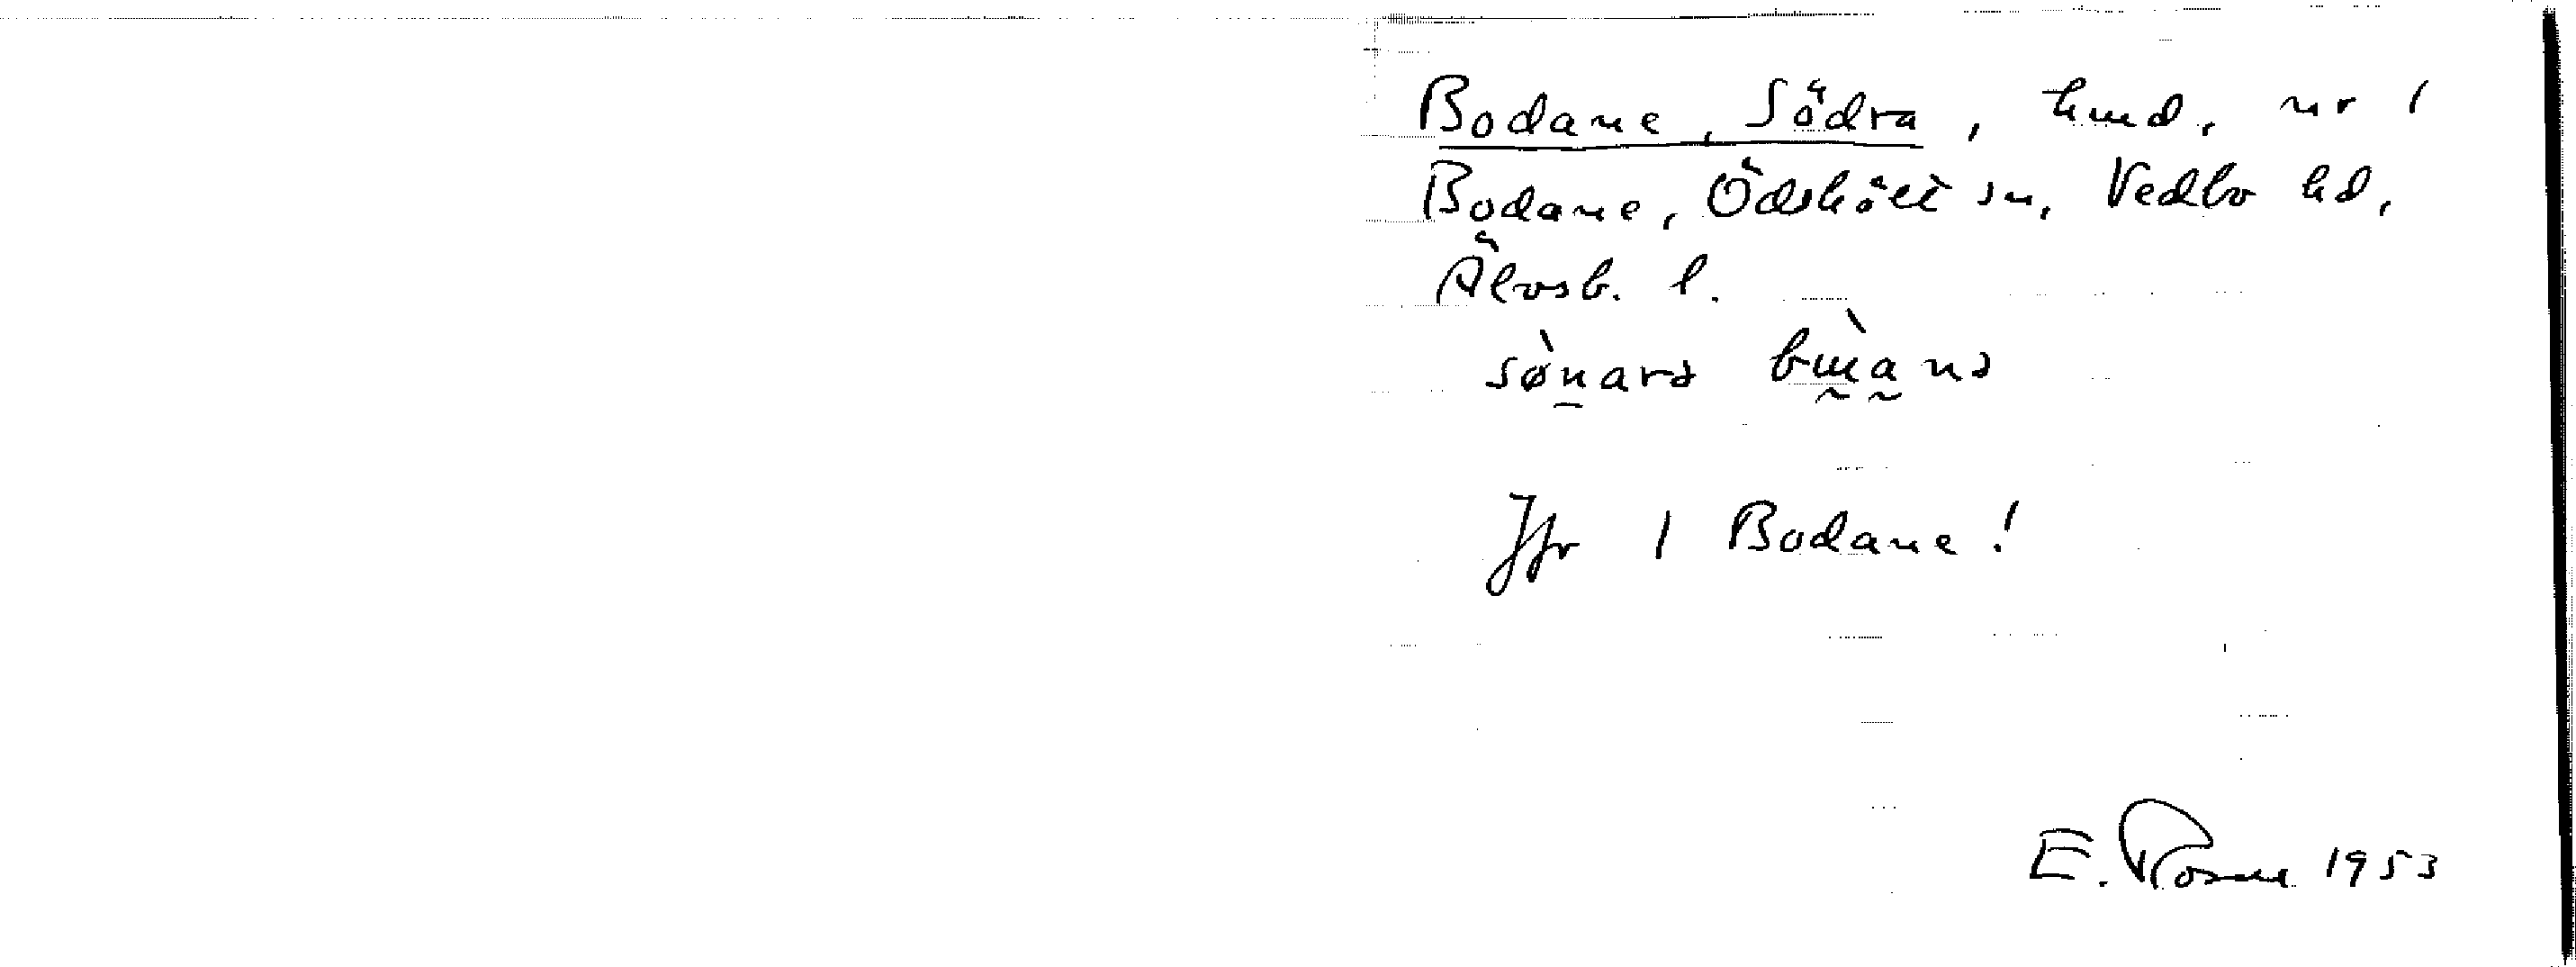 Bodane, Södra, hmd, nr 1
Bodane, Ödskölt sn, Vedbo hd,
Älvsb. l.
sø̀narə bɯ̀anə
Jfr 1 Bodane!
E. Rosne 1953